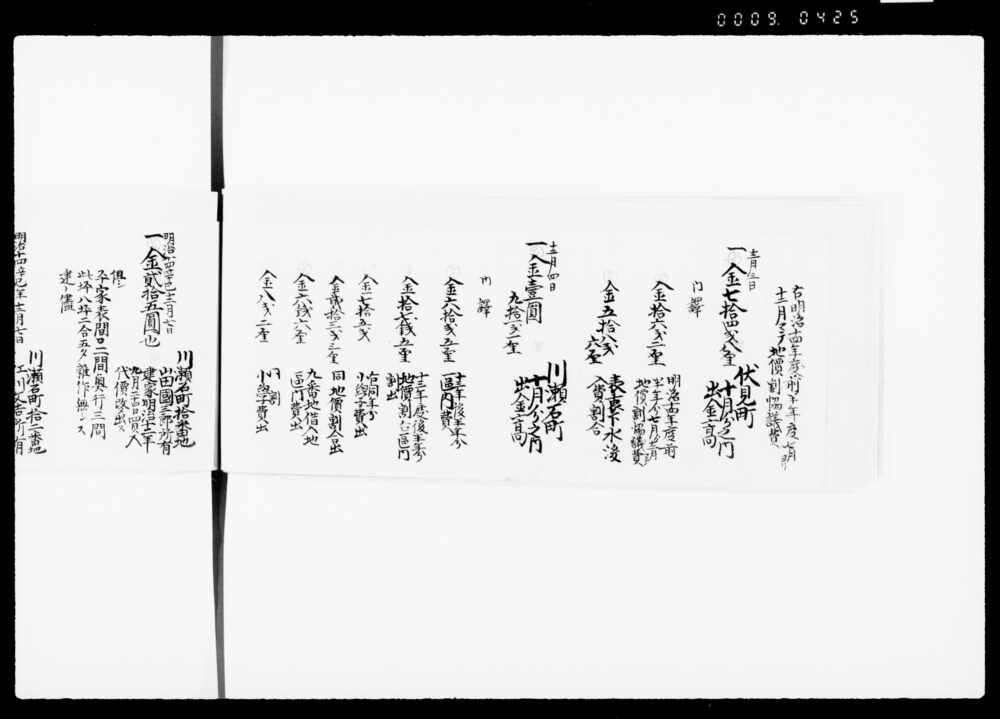 0009. 0425
右明治十四年度前半年度七月ゟ
十二月マテ地價割協議費
十二月三日
一金七拾四戔八厘
伏見町
十月分之内
出金高
内譯
金拾六戔二厘
明治十四年度前
半年分七月ゟ十二月
地價割協議費
金五拾八戔
六厘
表裏下水浚
入費割合
十二月四日
一金壹圓
九拾戔一厘
川瀬石町
十月分之内
出金高
内譯
金六拾戔五厘
十三年後半年分
區内費
金拾七戔五厘
十三年度後半年分
地價割
割出
金七拾五戔
右同年分
小學子費出
金貳拾三戔三厘
同地價割合出
金六戔六厘
九番地借人地
區内費出
金八戔二厘
同割
小學子費出
明治十四年辛巳十二月六日
一金貳拾五圓也
川瀬石町拾番地
山田國三郎所有
建家明治十二年
九月二十四日買入
代價改出ス
但シ
平家表間口二間奥行三間
此坪八坪二合五夕雑作無シ
建ノ儘
明治十四年辛巳年十二月七日
川瀬石町拾二番地